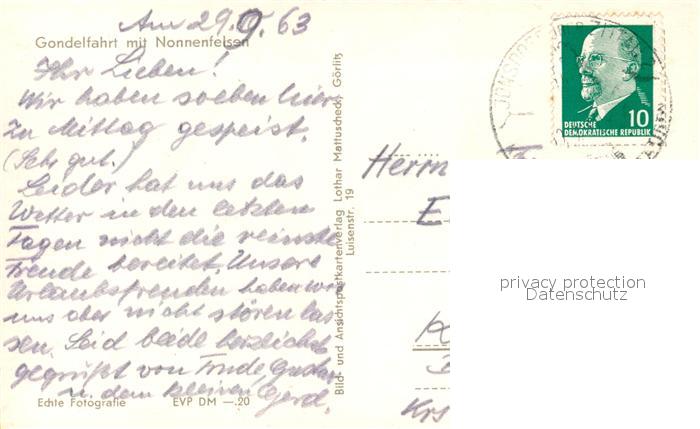 Am 29.9.63
Gondelfahrt mit Nonnenfelsen
Ihr Lieben!
Wir haben soeben hier
zu Mittag gespeist.
(Sehr gut.)
Leider hat uns das
Wetter in den letzten
Tagen nicht die reinste
Freude bereitet. Unsere
Urlaubsfreuden haben wir
uns aber nicht stören las
sen. Seid beide herzlichst
gegrüßt von Trude, Gustav
u. dem kleinen Gerd.
Echte Fotografie EVP DM —.20
Bild- und Ansichtspostkartenverlag Lothar Mattuscheck, Görlitz
Luisenstr. 19
JONSDORF
DEUTSCHE
DEMOKRATISCHE REPUBLIK
10
Herrn
E
K
Krs
privacy protection
Datenschutz